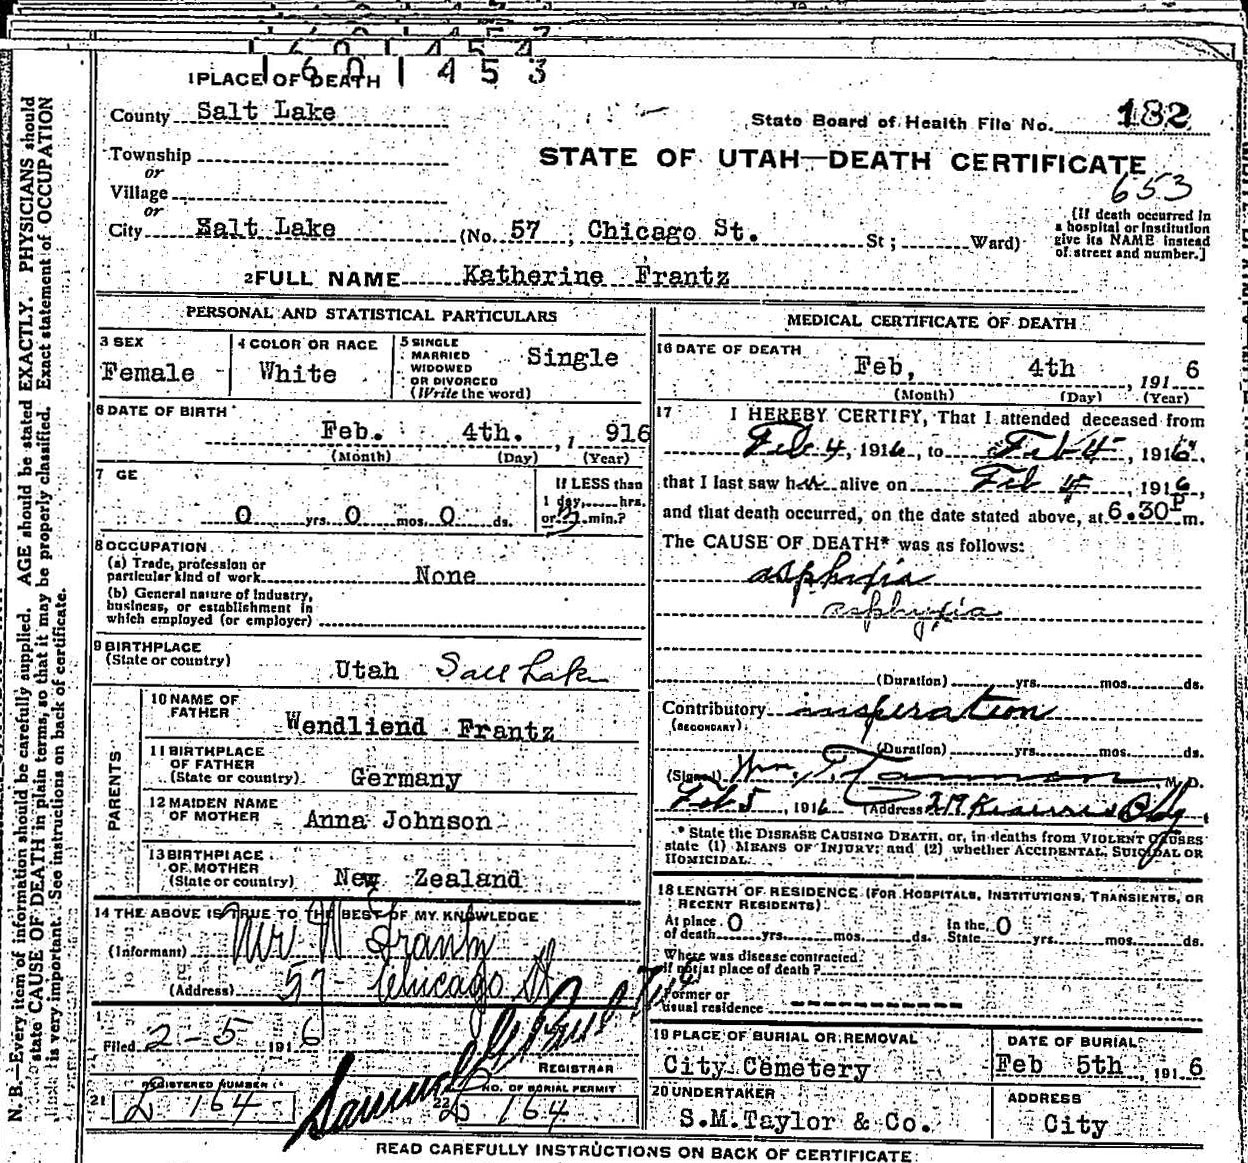 1601453
1 PLACE OF DEATH
County Salt Lake
State Board of Health File No. 182
Township
or
STATE OF UTAH—DEATH CERTIFICATE
653
Village
or
City Salt Lake (No. 57 ; Chicago St. St ; Ward)
[If death occurred in
a hospital or institution
give its NAME instead
of street and number.]
2 FULL NAME Katherine Frantz
PERSONAL AND STATISTICAL PARTICULARS
3 SEX
Female
4 COLOR OR RACE
White
5 SINGLE
MARRIED
WIDOWED
OR DIVORCED
(Write the word)
Single
6 DATE OF BIRTH
Feb. 4th. , 1 916
(Month) (Day) (Year)
7 GE
0 yrs. 0 mos. 0 ds.
If LESS than
1 day, hrs.
or min.?
8 OCCUPATION
(a) Trade, profession or
particular kind of work None
(b) General nature of Industry,
business, or establishment in
which employed (or employer)
9 BIRTHPLACE
(State or country)
Utah Salt Lake
PARENTS
10 NAME OF
FATHER
Wendliend Frantz
11 BIRTHPLACE
OF FATHER
(State or country)
Germany
12 MAIDEN NAME
OF MOTHER
Anna Johnson
13 BIRTHPLACE
OF MOTHER
(State or country)
New Zealand
14 THE ABOVE IS TRUE TO THE BEST OF MY KNOWLEDGE
(Informant) Mr W Frantz
(Address) 57 Chicago St
Filed 2-5 1916
REGISTRAR
21 REGISTERED NUMBER
164
22 NO. OF BURIAL PERMIT
164
MEDICAL CERTIFICATE OF DEATH
16 DATE OF DEATH
Feb, 4th , 191 6
(Month) (Day) (Year)
17 I HEREBY CERTIFY, That I attended deceased from
Feb 4, 1916, to Feb 4, 1916,
that I last saw her alive on Feb 4, 1916,
and that death occurred, on the date stated above, at 6.30 P m.
The CAUSE OF DEATH* was as follows:
asphyxia
asphyxia
(Duration) yrs. mos. ds.
Contributory insperation
(SECONDARY)
(Duration) yrs. mos. ds.
(Signed) Wm. T. M. D.
Feb 5, 1916 (Address) 219 Bldg
* State the DISEASE CAUSING DEATH, or, in deaths from VIOLENT CAUSES
state (1) MEANS OF INJURY; and (2) whether ACCIDENTAL, SUICIDAL OR
HOMICIDAL.
18 LENGTH OF RESIDENCE (FOR HOSPITALS, INSTITUTIONS, TRANSIENTS, OR
RECENT RESIDENTS)
At place of death 0 yrs. mos. ds. In the State 0 yrs. mos. ds.
Where was disease contracted
if not at place of death?
Former or
usual residence
19 PLACE OF BURIAL OR REMOVAL
City Cemetery
DATE OF BURIAL
Feb 5th , 191 6
20 UNDERTAKER
S.M.Taylor & Co.
ADDRESS
City
READ CAREFULLY INSTRUCTIONS ON BACK OF CERTIFICATE:
N. B.—Every item of information should be carefully supplied. AGE should be stated EXACTLY. PHYSICIANS should
state CAUSE OF DEATH in plain terms, so that it may be properly classified. Exact statement of OCCUPATION
is very important. See instructions on back of certificate.